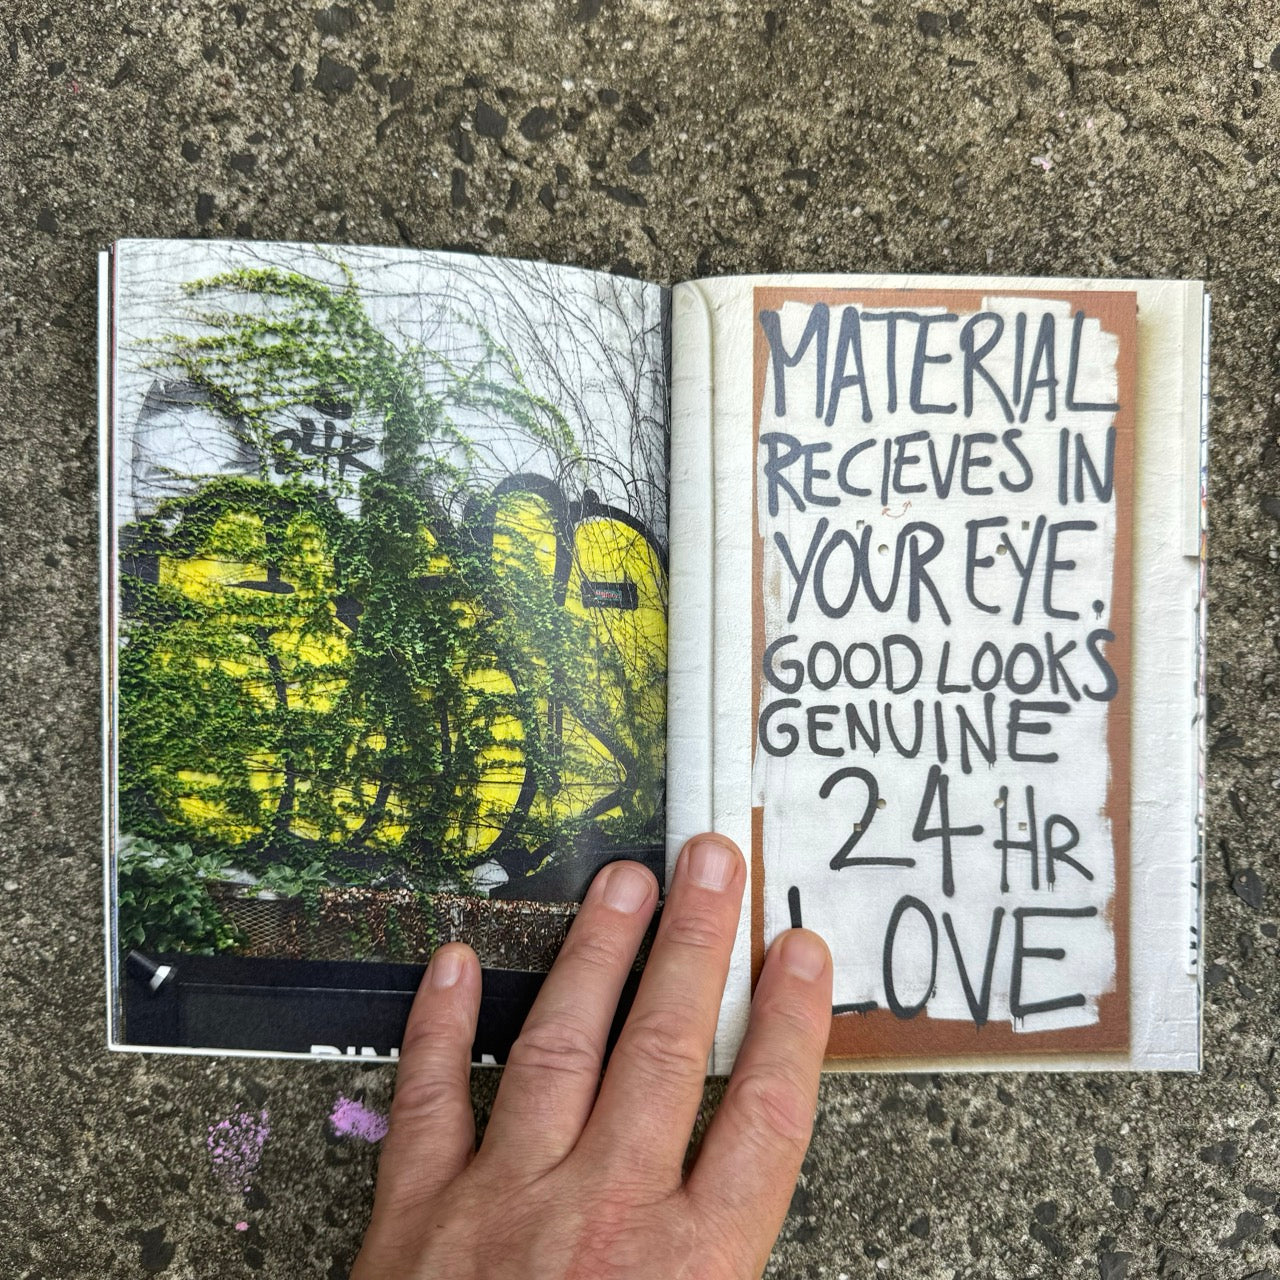 MATERIAL
RECIEVES IN
YOUR EYE.
GOOD LOOKS
GENUINE
24 HR
LOVE